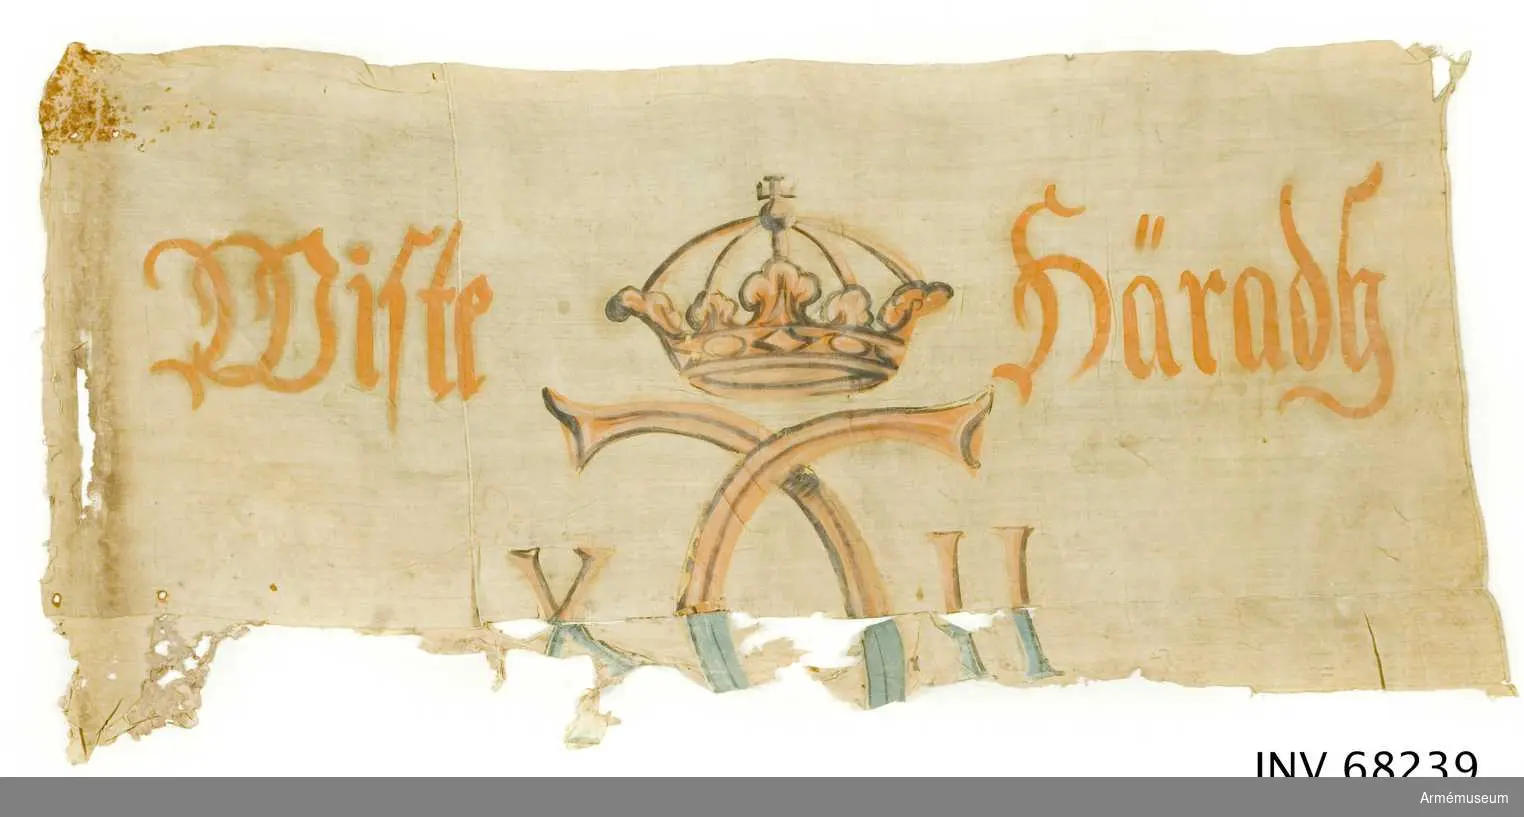 Wiste Häradh
X C II
INV 68239
Armémuseum